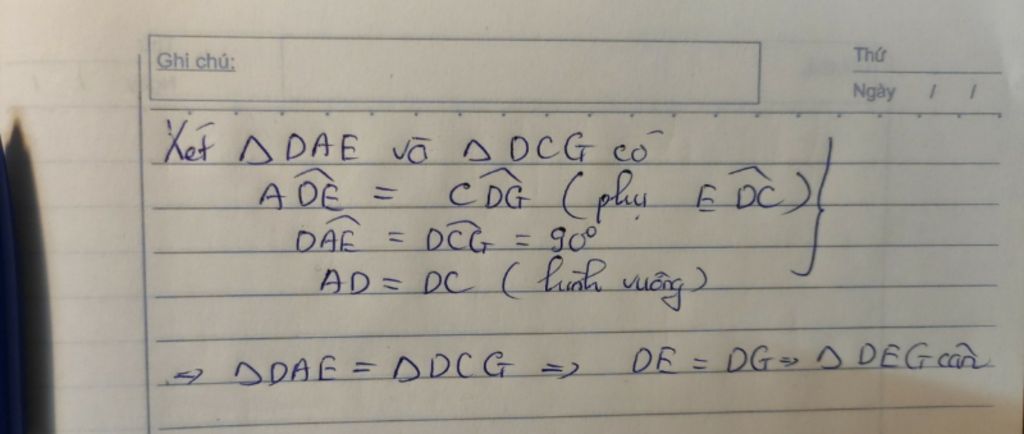 Ghi chú:
Thứ
Ngày / /
Xét △ DAE và △ DCG có
A\widehat{DE} = C\widehat{DG} (phụ E\widehat{DC})
\widehat{DAE} = \widehat{DCG} = 90°
AD = DC (hình vuông)
=> △DAE = △DCG => DE = DG => △ DEG cân